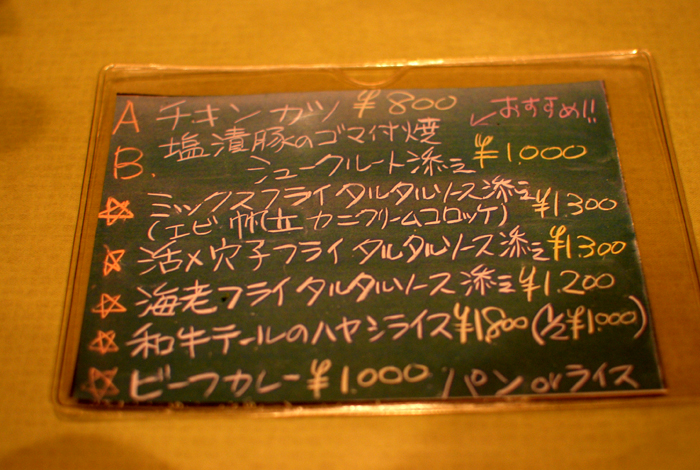 A チキンカツ ¥800 おすすめ!!
B. 塩漬豚のゴマ付焼
シュークルート添え ¥1000
☆ ミックスフライ タルタルソース添え ¥1300
(エビ 帆立 カニクリームコロッケ)
☆ 活〆穴子フライ タルタルソース添え ¥1300
☆ 海老フライ タルタルソース添え ¥1200
☆ 和牛テールのハヤシライス ¥1800 (½ ¥1000)
☆ ビーフカレー ¥1.000 パン or ライス